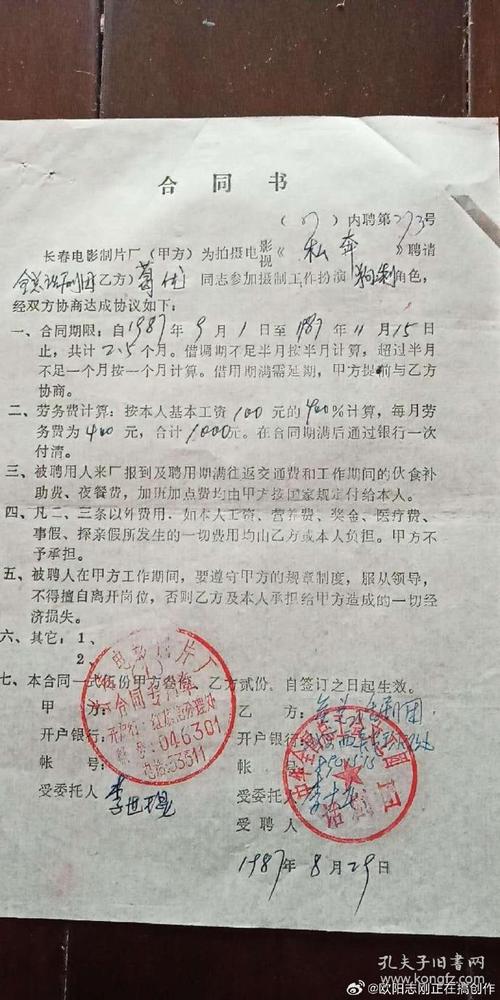 合同书
（87）内聘第273号
长春电影制片厂（甲方）为拍摄电影视《私奔》聘请
全总话剧团（乙方）葛优同志参加摄制工作扮演狗剩角色，
经双方协商达成协议如下：
一、合同期限：自1987年9月1日至1987年11月15日
止，共计2.5个月。借调期不足半月按半月计算，超过半月
不足一个月按一个月计算。借用期满需延期，甲方提前与乙方
协商。
二、劳务费计算：按本人基本工资100元的400%计算，每月劳
务费为400元，合计1000元。在合同期满后通过银行一次
付清。
三、被聘用人来厂报到及聘用期满往返交通费和工作期间的伙食补
助费、夜餐费，加班加点费均由甲方按国家规定付给本人。
四、凡二、三条以外费用．如本人工资、营养费、奖金、医疗费、
事假、探亲假所发生的一切费用均由乙方或本人负担。甲方不
予承担。
五、被聘人在甲方工作期间，要遵守甲方的规章制度，服从领导，
不得擅自离开岗位，否则乙方及本人承担给甲方造成的一切经
济损失。
六、其它：1、
2、
七、本合同一式伍份甲方叁份，乙方贰份．自签订之日起生效。
甲方：
开户银行：
帐号：
受委托人
电影制片厂
合同专用章
开户行：红旗街办理处
帐号：046301
电话：53311
乙方：全总话剧团
开户银行：
帐号：
受委托人
受聘人
话剧团
1987年8月29日
孔夫子旧书网
www.kongfz.com
@欧阳志刚正在搞创作